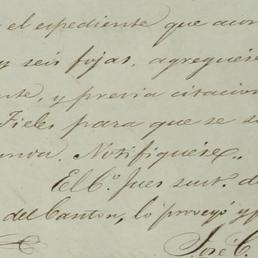 el expediente que aun
y seis fojas, agreguese
y previa citacion
Fieles para que se
Notifiquese.
El C.º Jues sust. d
del Canton, lo proveyó y
José C.